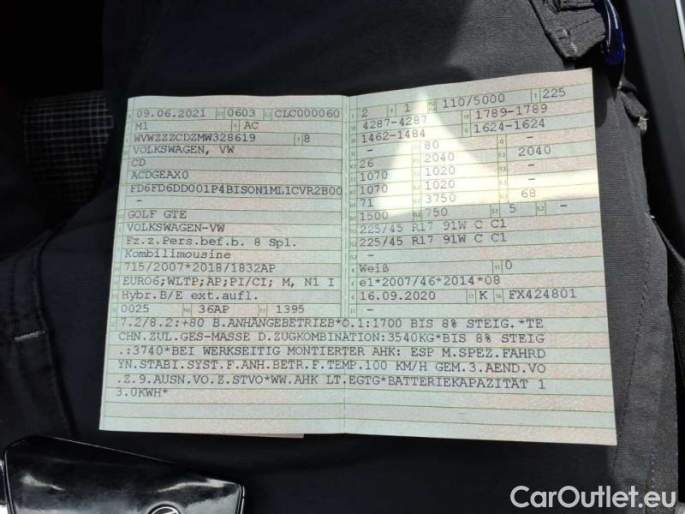 09.06.2021 0603 CLC000060
M1 AC
WVWZZZCDZMW328619 8
VOLKSWAGEN, VW
CD
ACDGEAX0
FD6FD6DD001P4BISON1ML1CVR2B00
-
GOLF GTE
VOLKSWAGEN-VW
Fz.z.Pers.bef.b. 8 Spl.
Kombilimousine
715/2007*2018/1832AP
EURO6;WLTP;AP;PI/CI; M, N1 I
Hybr.B/E ext.aufl.
0025 36AP 1395
2 1 110/5000 225
4287-4287 1789-1789
1462-1484 1624-1624
- 80 -
26 2040 2040
1070 1020 -
1070 1020 -
71 3750 68
1500 750 5 -
225/45 R17 91W C C1
225/45 R17 91W C C1
-
Weiß 0
e1*2007/46*2014*08
16.09.2020 K FX424801
7.2/8.2:+80 B.ANHÄNGEBETRIEB*O.1:1700 BIS 8% STEIG.*TE
CHN.ZUL.GES-MASSE D.ZUGKOMBINATION:3540KG*BIS 8% STEIG
.:3740*BEI WERKSEITIG MONTIERTER AHK: ESP M.SPEZ.FAHRD
YN.STABI.SYST.F.ANH.BETR.F.TEMP.100 KM/H GEM.3.AEND.VO
.Z.9.AUSN.VO.Z.STVO*WW.AHK LT.EGTG*BATTERIEKAPAZITÄT 1
3.0KWH*
CarOutlet.eu